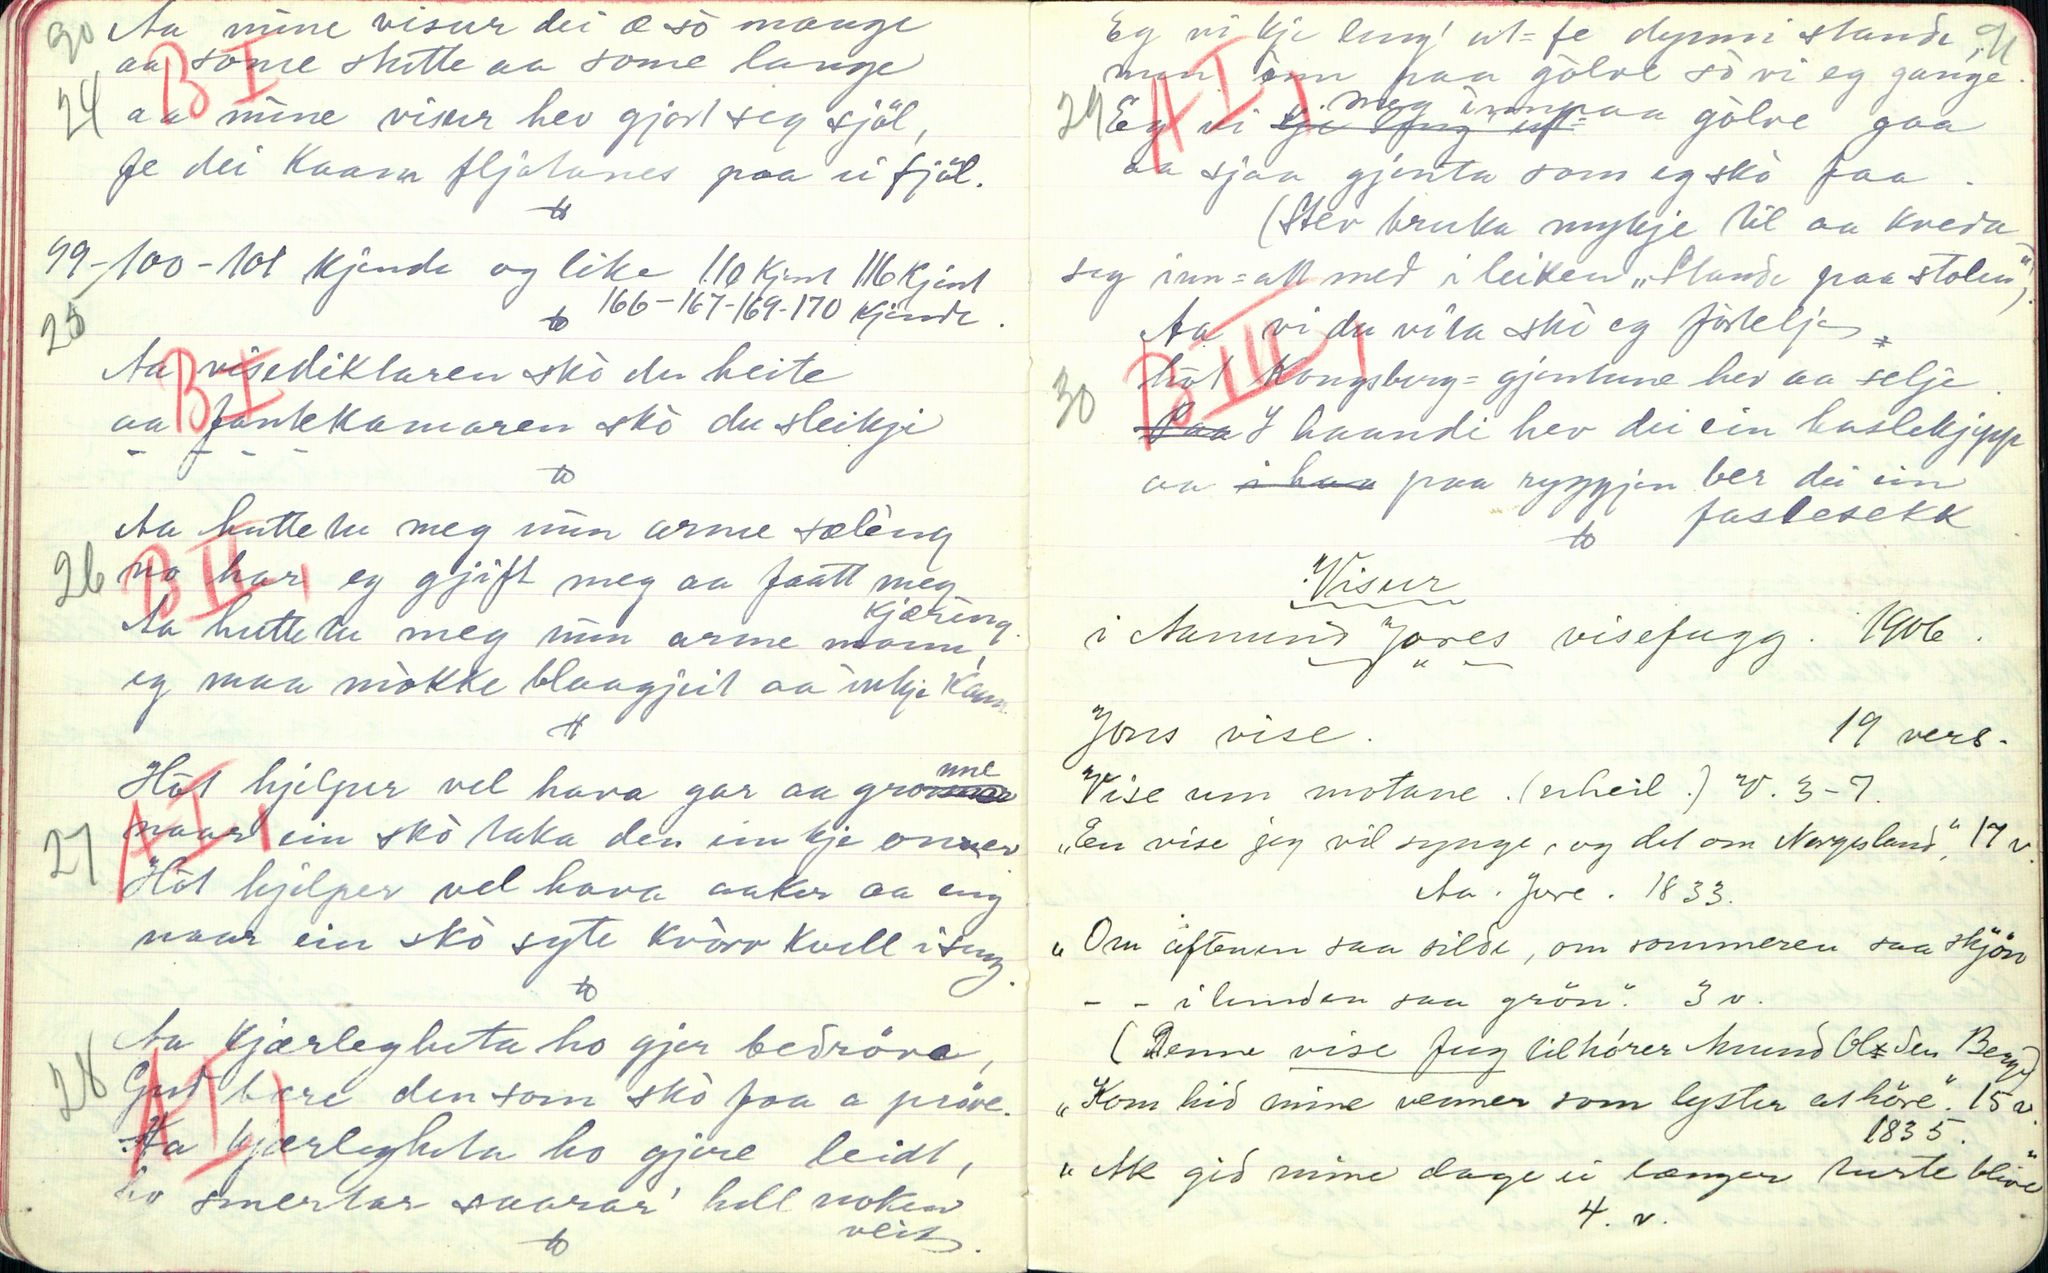 90
Aa mine visur dei æ sò mange
aa some stutte aa some lange
24 B I
aa mine visur hev gjort seg sjöl,
fe dei kaam fljotanes paa ei fjöl.
99-100-101 kjende og like 110 kjent 116 kjent
166-167-169-170 kjende.
25
Aa visediktaren skò du heite
B I
aa fantekamaren skò du sleikje
- - - -
Aa huttetu meg min arme sæleng
26 B II,
no har eg gjift meg aa faatt meg
kjæring.
Aa huttetu meg min arme mann,
eg maa mòkke blaagjeit aa inkje kann
Hòt hjelper vel hava gar aa grònne
27 A I,
naar ein skò taka den ein kje onner
Hòt hjelper vel hava aaker aa eng
naar ein skò syte kvòrv kvell i seng.
Aa kjærlegheta ho gjer bedröva,
28 A I,
Gud bære den som skò faa a pröve.
Aa kjærlegheta ho gjere leidt,
ho smertar saarar' hell noken
veit.
91
Eg vi kje leng' ut= fe dynni stande,
men inn paa gòlve sò vi eg gange.
29 A I,
Eg vi kje leng' ut= meg innpaa gòlve gaa
aa sjaa gjenta som eg skò faa.
(Stev bruka mykje til aa kveda
seg inn=att med i leiken "Stande paa stolen").
Aa vi du vita skò eg fòrtelja
30 B III,
hòt Kongsberg=gjentune hev aa selje.
Paa I haandi hev dei ein haslekjepp
aa i haa paa ryggjen ber dei ein
fastesekk
Visur
i Aamund Jores visefugg. 1906.
Jons vise. 19 vers.
Vise um motane. (erheil.) V. 3-7.
"En vise jeg vil synge, og det om Norgesland", 17 v.
Aa. Jore. 1833.
"Om aftenen saa silde, om sommeren saa skjön
- - i lunden saa grön". 3 v.
(Denne vise fug tilhörer Amund Olsden Berge)
"Kom hid mine venner som lyster at höre". 15 v.
1835.
"Ak gid mine dage ei længer turte blive"
4. v.